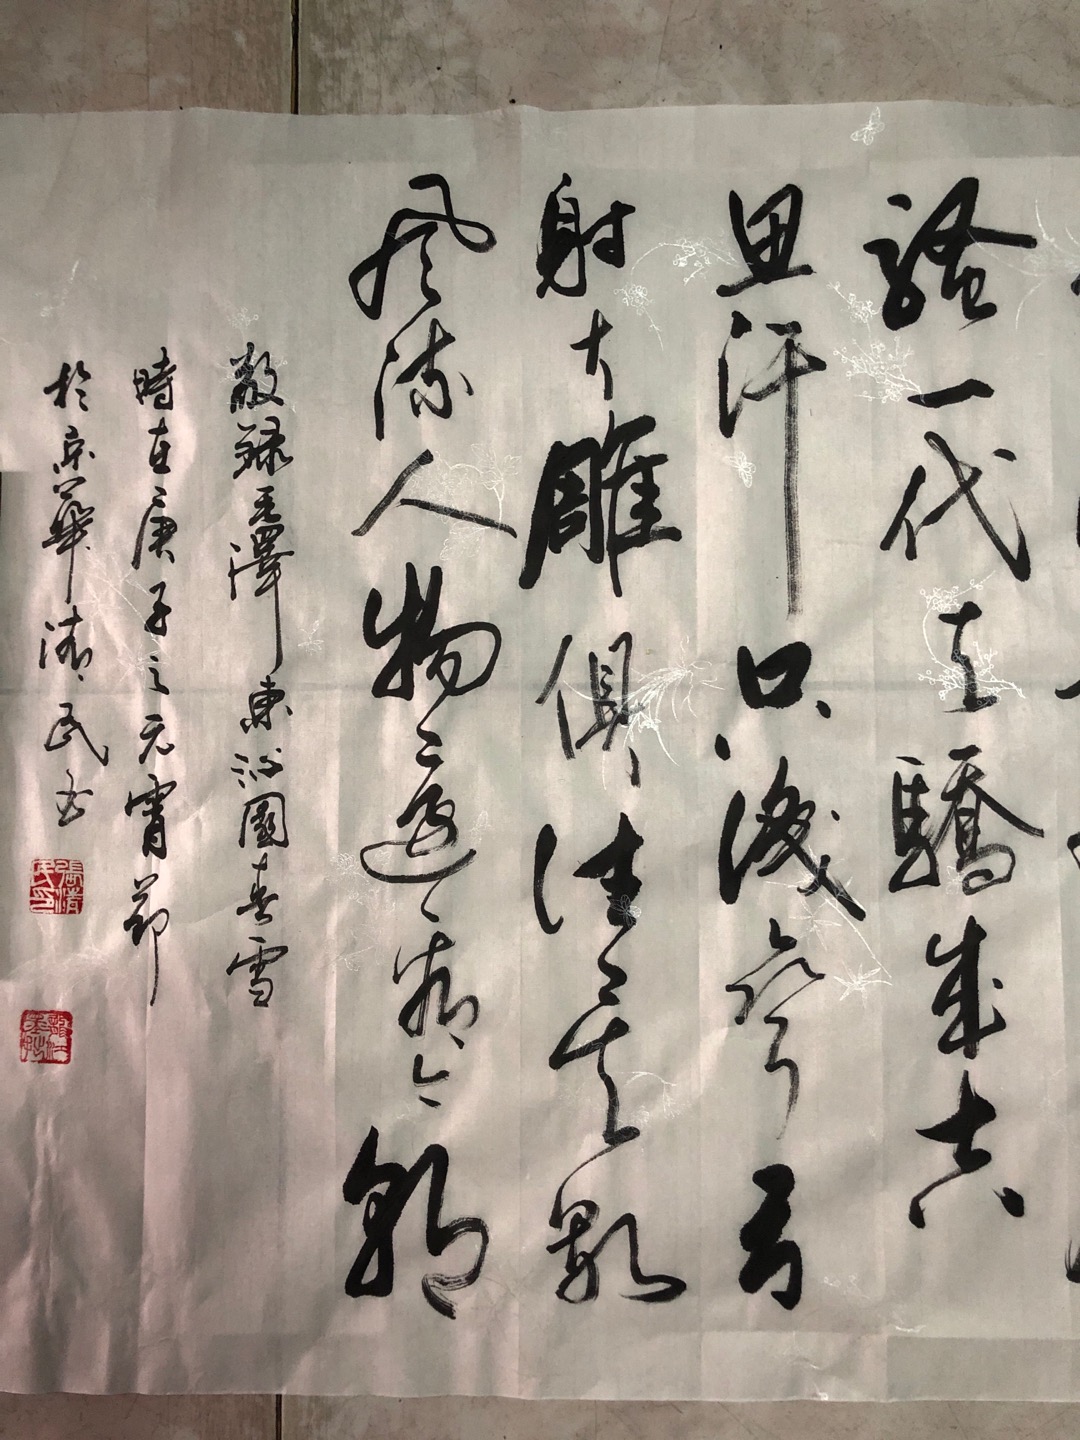 騷一代天驕成吉
思汗只識彎弓
射大雕俱往矣數
風流人物還看今朝
敬錄毛澤東沁園春雪
時在庚子之元宵節
於京華清民書
張清民印